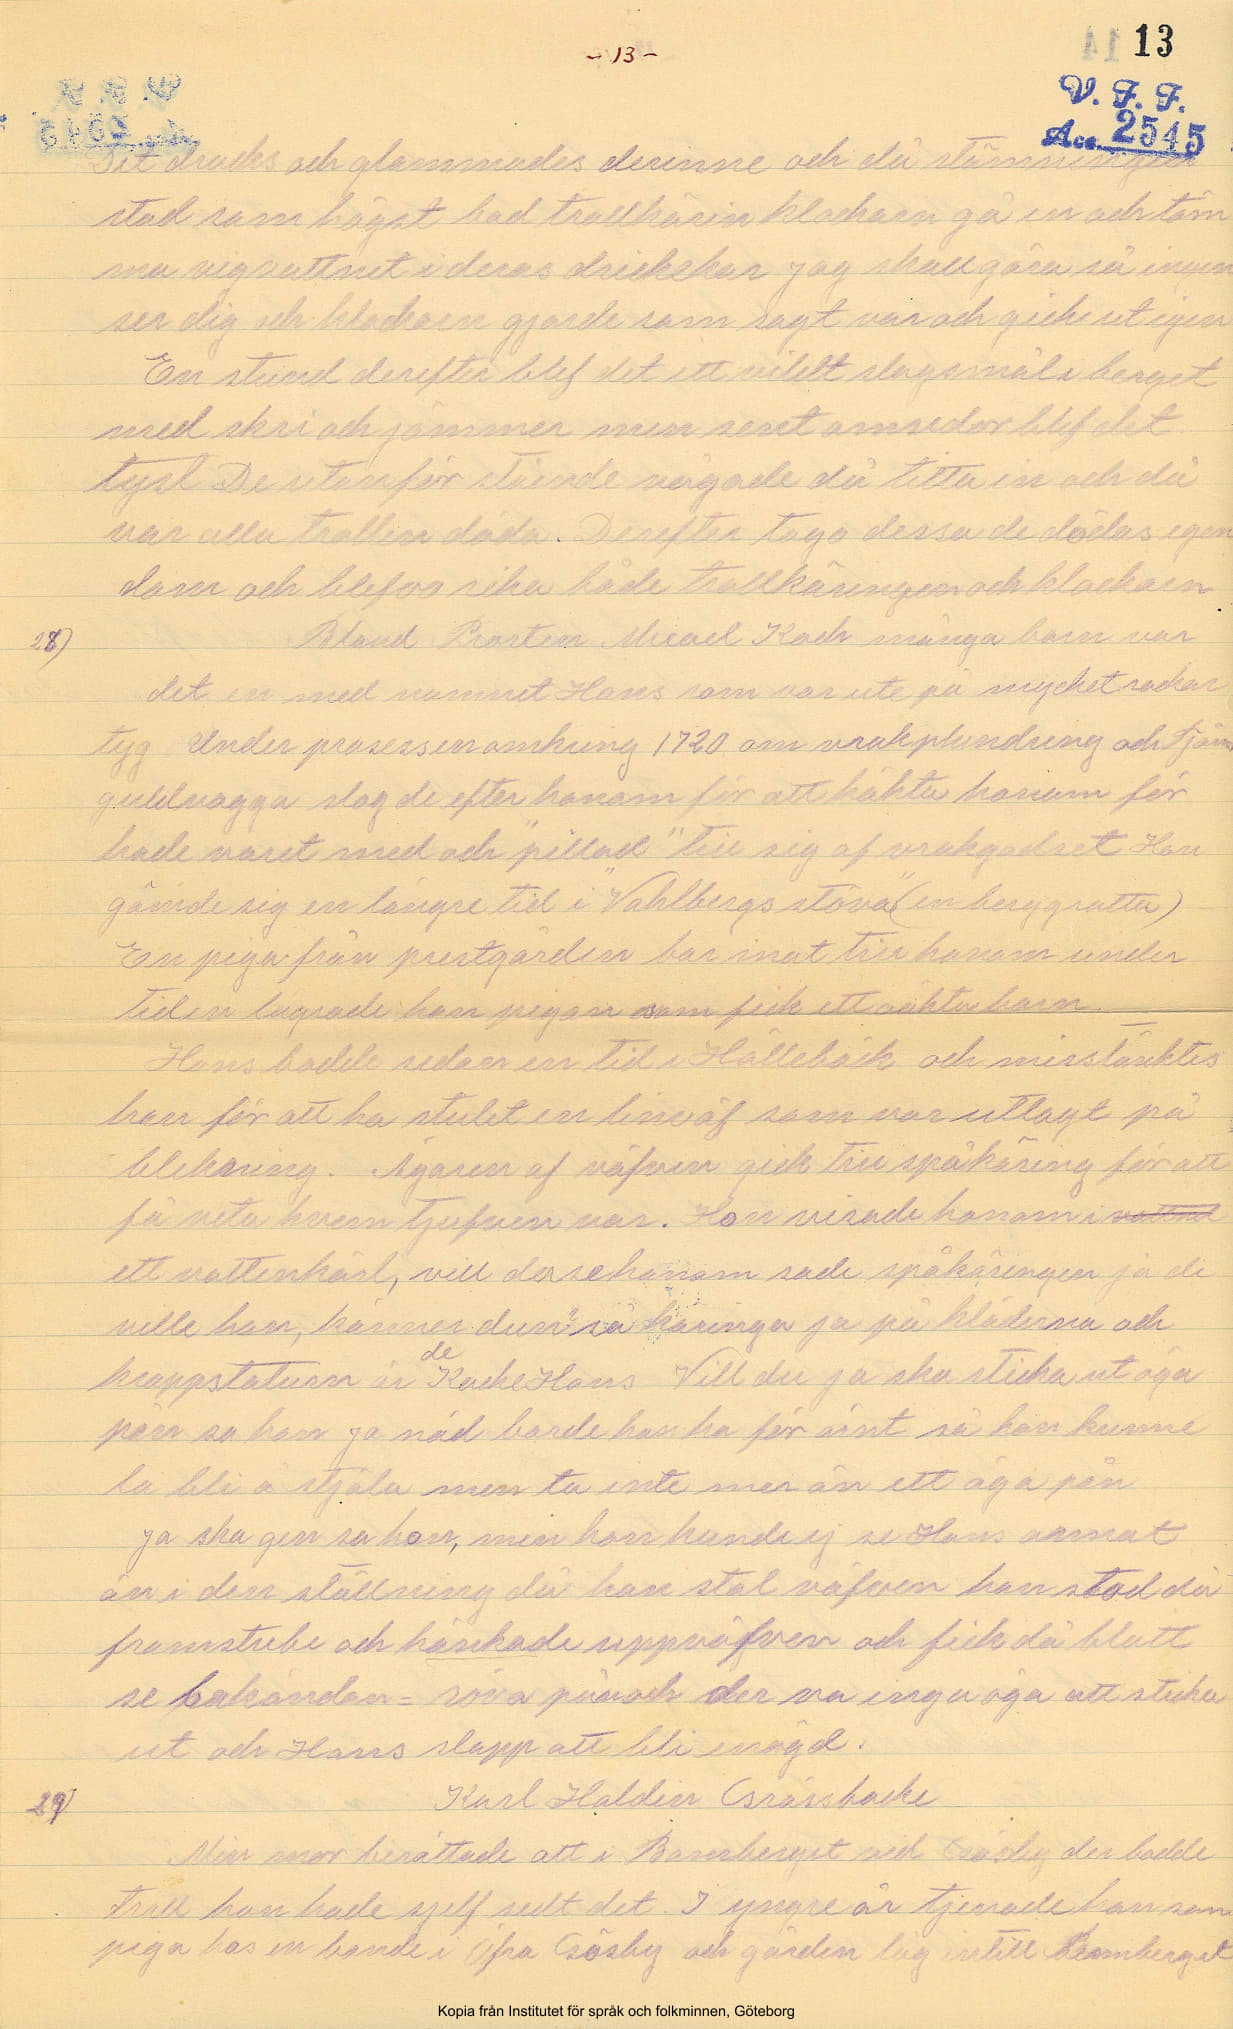 - 13 -
13
V. F. F.
Acc. 2545
Det dracks och glammades derinne och då stämningen
stod som högst bad trollkärin klockarn gå in och töm
ma vigvattnet i deras drickskar jag skall göra så ingen
ser dig och klockaren gjorde som sagt var och gick ut igen
En stund derefter blef det ett vildt slagsmål i berget
med skri och jämmer men sent omsidor blef det
tyst De utanför stående vågade då titta in och då
var alla trollen döda. Derefter togo dessa de dödas egen
dom och blefvo rika både trollkäringen och klockaren
28)
Bland Prosten Micael Koch många barn var
det en med namnet Hans som var ute på mycket rackar
tyg Under prosessen omkring 1720 om vrakplundring och
guldvagga slog de efter honom för att häkta honom för
hade varet med och "pillad" till sig af vrakgodset Han
gömde sig en längre tid i "Vahlbergs stova" (en berggrotta)
En piga från prestgården bar mat till honom under
tiden lägrade han pigan som fick ett oäkta barn
Hans bodde sedan en tid i Hällebäck och misstänktes
han för att ha stulet en linväf som var utlagt på
blekning. Ägaren af väfven gick till spåkäring för att
få veta hvem tjufven var. Hon visade honom i
ett vattenkärl, vill du se honom sade spåkäringen ja de
ville han, känner dun" sa käringa ja på kläderna och
kroppstaturn är de KockeHans Vill du ja ska sticka ut öga
pån sa hon ja nåd borde han ha för ont så han kunne
la bli å stjäla men ta inte mer än ett öga pån
Ja ska gen sa hon, men hon kunde ej se Hans annat
än i den ställning då han stal väfven han stod då
framstube och hänkade uppväfven och fick då blott
se bakändan = röva på och der va inga öga att sticka
ut och Hans slapp att bli enögd.
29)
Karl Haldin Gråssbacke
Min mor berättade att i Bomberget ved Gåsby der bodde
troll hon hade sjelf sedt det. I yngre år tjenade hon som
piga hos en bonde i Öfra Gåsby och gården låg intill Bomberget
Kopia från Institutet för språk och folkminnen, Göteborg